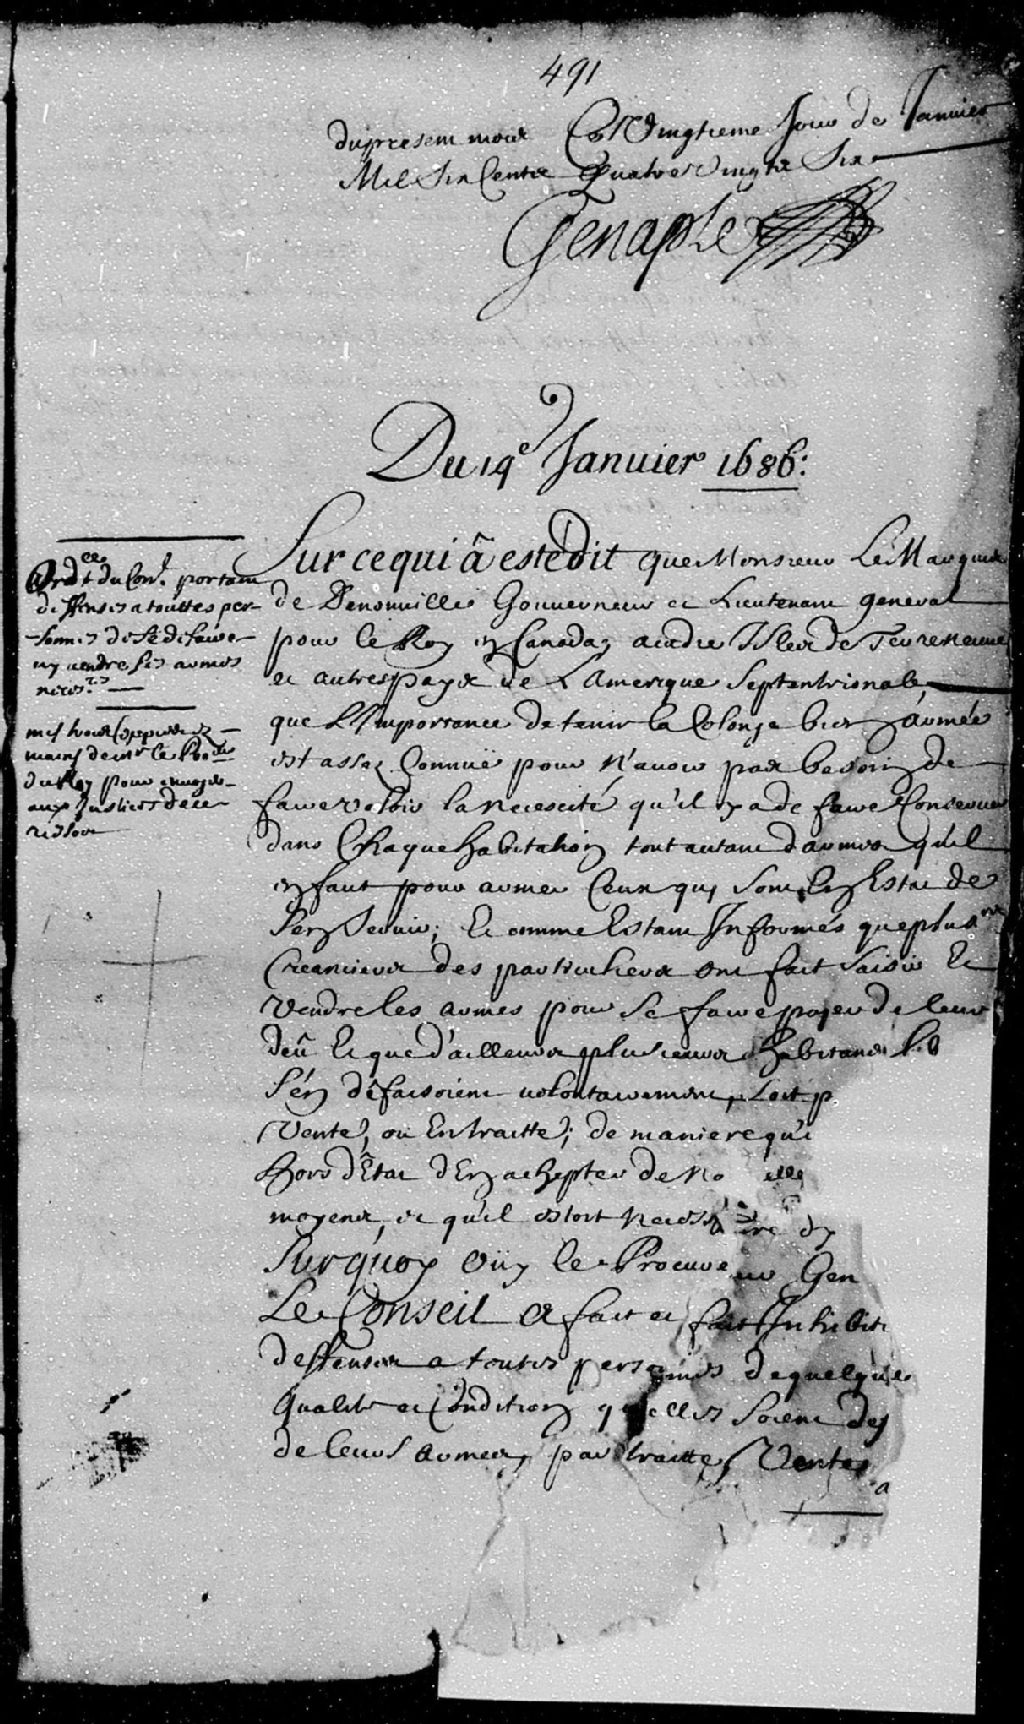 491
du present mois Ce Vingtieme Jour de Janvier
Mil Six Cents Quatre Vingts Six
Genaple
Du 19e Janvier 1686:
Ordce du Conl. portant
deffenses a touttes per-
sonnes de se defaire
ny vendre ses armes
necesres
mis trois Coppies ez
mains de mr le Procr
du Roy pour envoyer
aux Justices de ce
ressort
Sur ce qui â esté dit que Monsieur Le Marquis
de Denonville Gouverneur et Lieutenant general
pour le Roy en Canada, acadie Isles de Terreneuve
et autres pays de L'Amerique Septentrionale,
que L'Importance de tenir la Colonie bien armée
est assez Connuë pour N'avoir pas besoin de
faire voloir la Necessité qu'il y a de faire Conserver
dans Chaque habitation tout autant d'armes qu'il
en faut pour armer Ceux qui sont En Estat de
s'en servir; Et comme Estant Informés que plusrs
Creanciers des particuliers ont fait saisir Et
vendre les armes pour se faire payer de leur
deû Et que d'ailleurs plusieurs habitans
s'en défaisoient volontairement, soit p
Vente, ou En traitte; de maniere qu'i
hors d'État d'En achepter de No elle
moyens, et qu'il estoit Necess re d'y
Sur quoy Oüy le Procureur Gen
Le Conseil a fait et fait Inhibiti
deffenses a toutes personnes de quelque
Qualité et Condition qu'elles soient de
de leurs armes, par traitte, Vente,
a